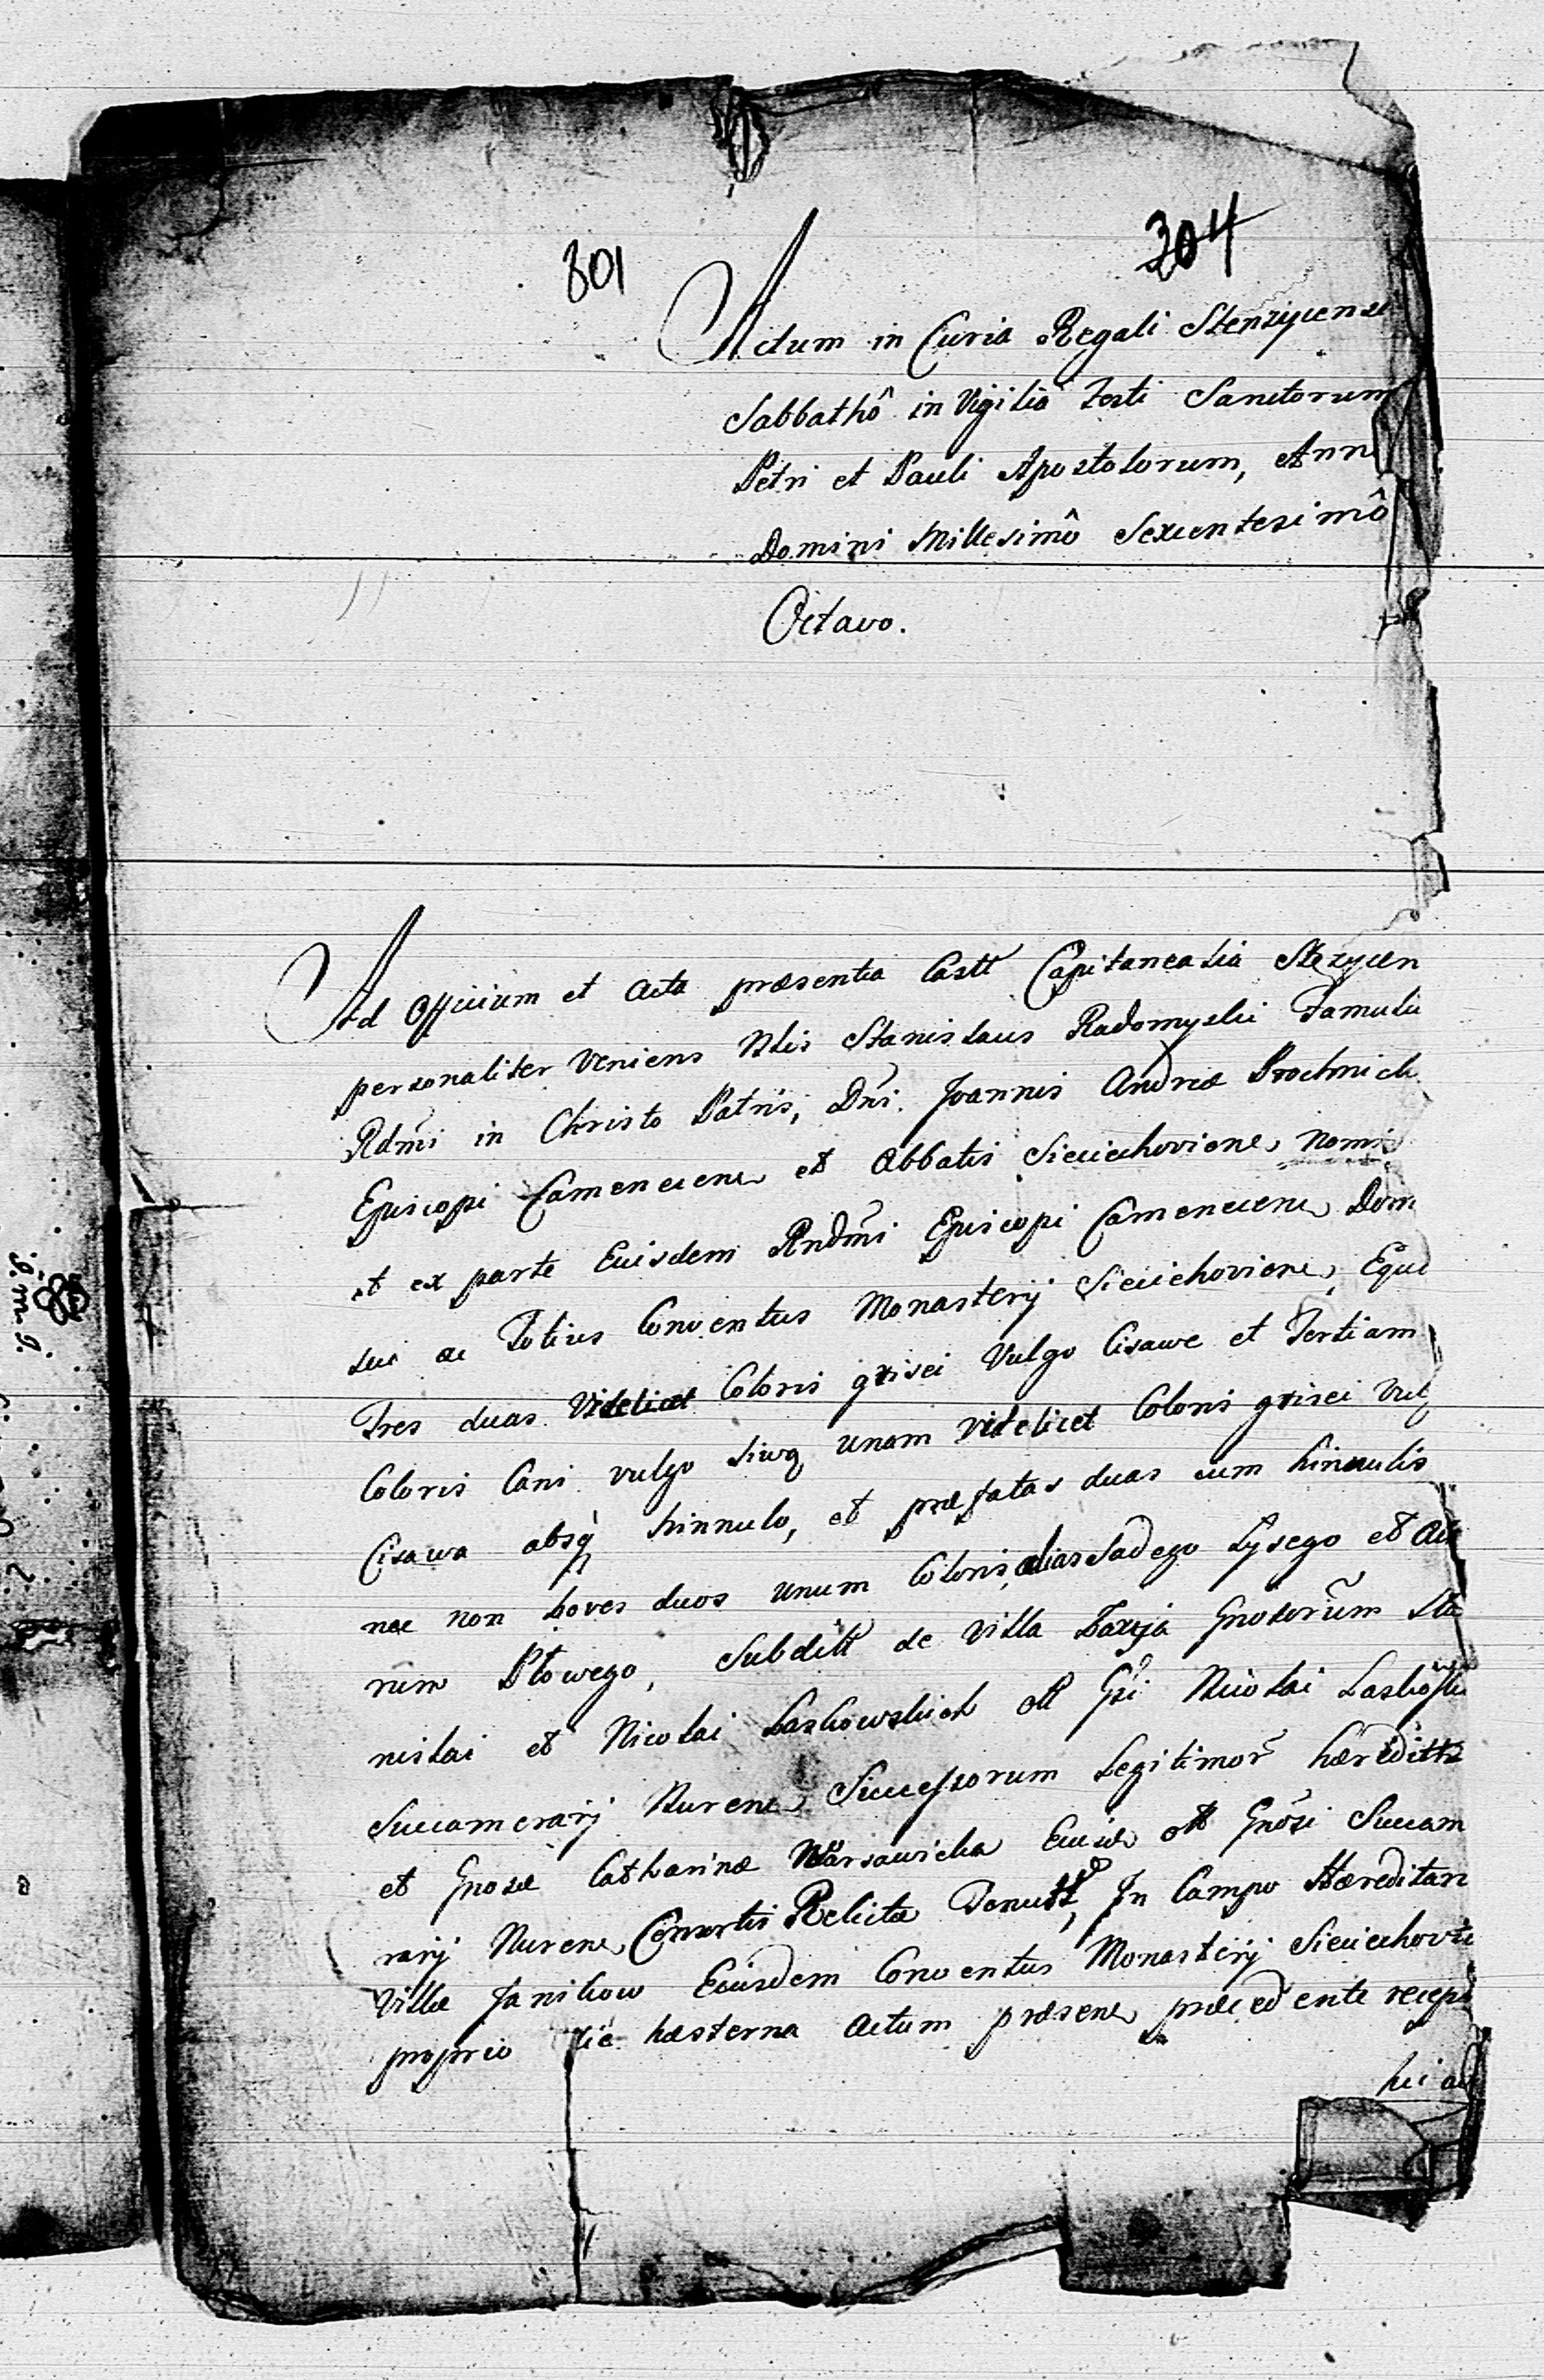 801
304
Actum in Curia Regali Stenzycense
Sabbathô in Vigilia Festi Sanctorum
Petri et Pauli Apostolorum, Ann
Domini Millesimô Sexcentesimô
Octavo.
Ad Officium et Acta præsentia Castt Capitanealia Stezycen
personaliter veniens Nlis Stanislaus Radomyski Famulu
Rdmi in Christo Patris, Dni. Joannis Andreæ Prochnick
Episcopi Camenecens et Abbatis Sieciechoviens, nomi
et ex parte Euisdem Rndmi Episcopi Camenecens Dom
sui ac Totius Conventus Monasterij Sieciechoviens, Equa
Tres duas Videlicet Coloris grisei Vulgo Cisawe et Tertiam
Coloris Cani vulgo siwą unam videlicet Coloris grisei vul
Cisawa absq hinnulo, et præfatas duas cum hinnulis
nec non boves duos unum Coloris alias Sadego Lysego et
rum Płowego, Subditt de Villa Gnosorum Sta
nislai et Nicolai Laskowskich olt Gsi Nicolai
Succamerarij Nurens Successorum Legitimor hæreditt
et Gnosæ Catharinæ Warsawicka olt Gnosi Succam
rarij Nurens, Consortis Relictæ In Campo Hæreditari
Villæ Janikow Eiusdem Conventus Monasterij Sieciechovi
proprio die hæsterna actum præsens præcedente recep
hic ad